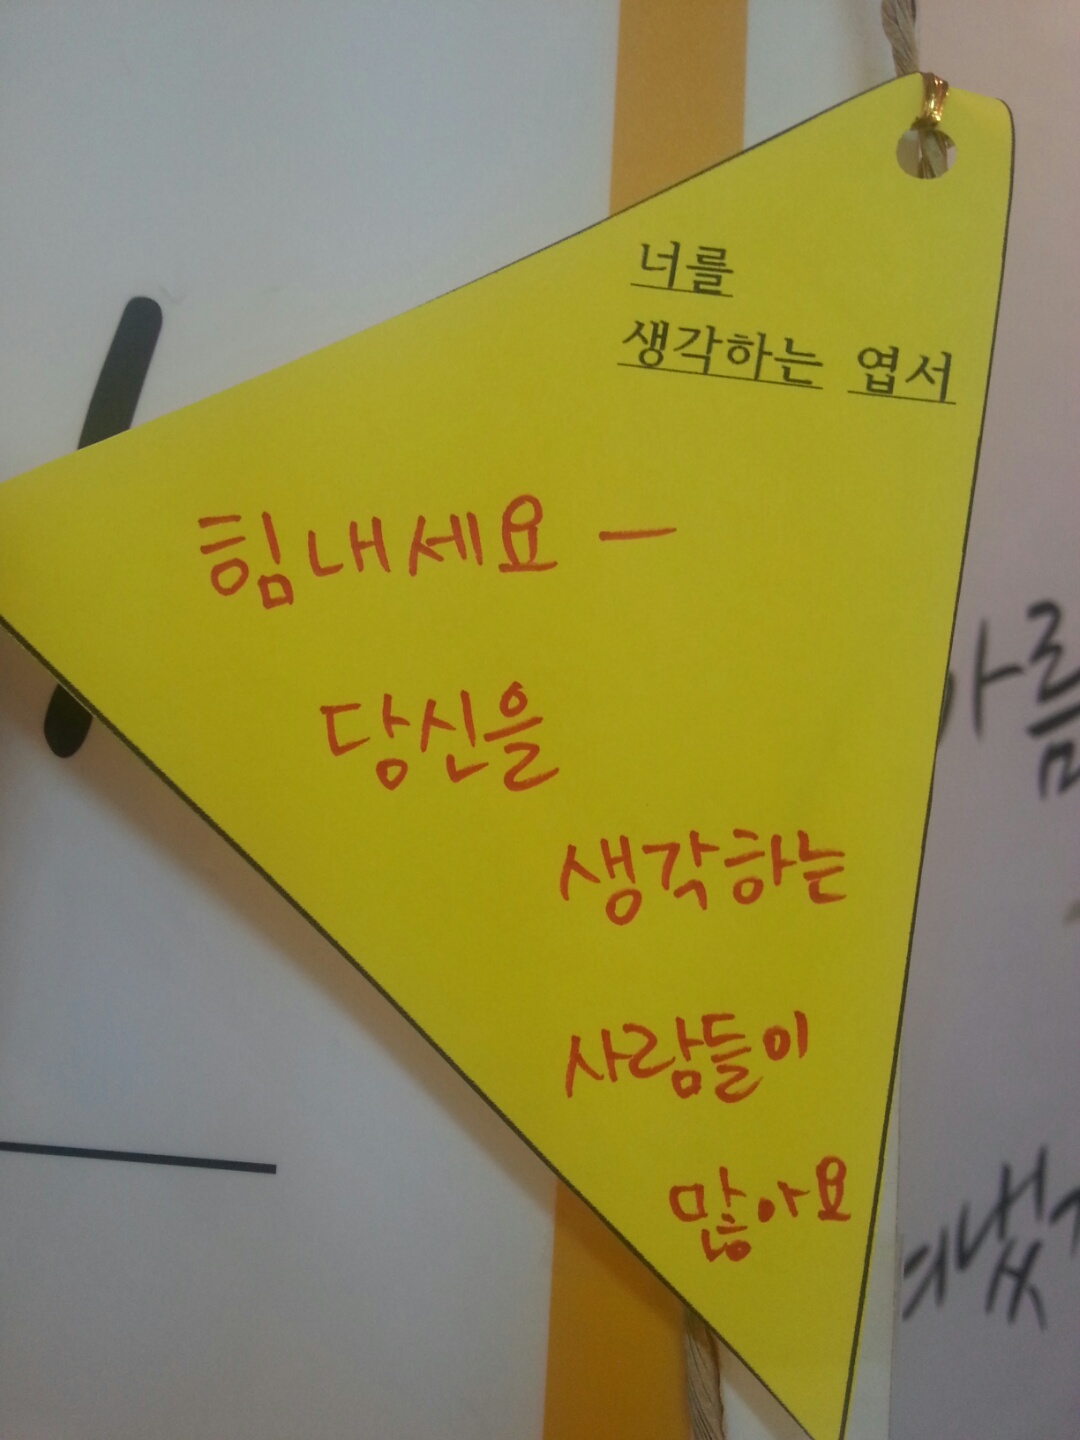 너를
생각하는 엽서
힘내세요 —
당신을
생각하는
사람들이
많아요
아름